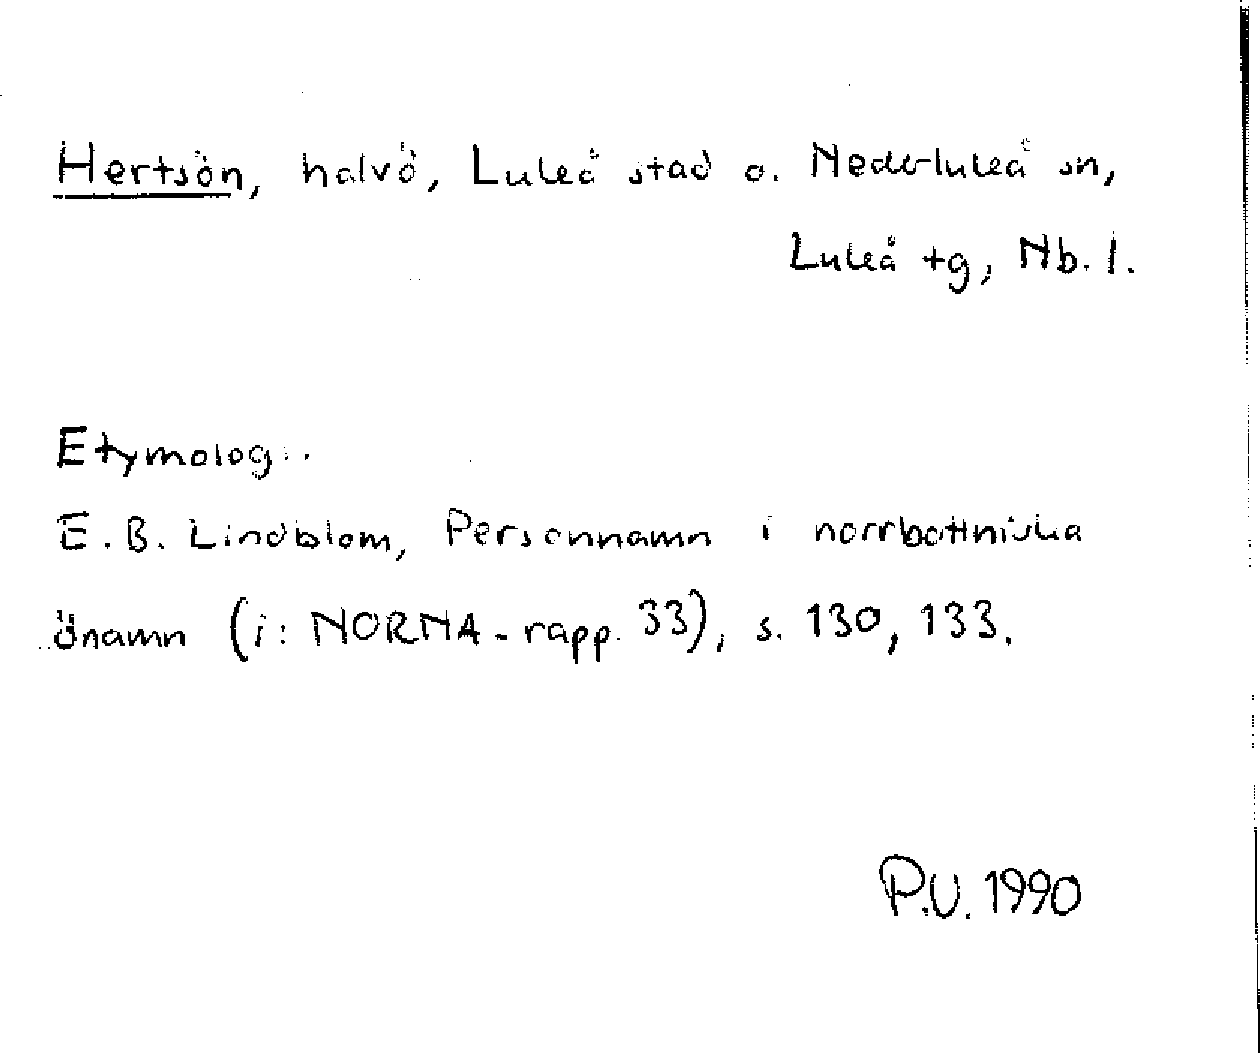 Hertsön, halvö, Luleå stad o. Nederluleå sn,
Luleå tg, Nb. l.
Etymolog..
E. B. Lindblom, Personnamn i norrbottniska
önamn (i: NORNA-rapp. 33), s. 130, 133.
P.U. 1990